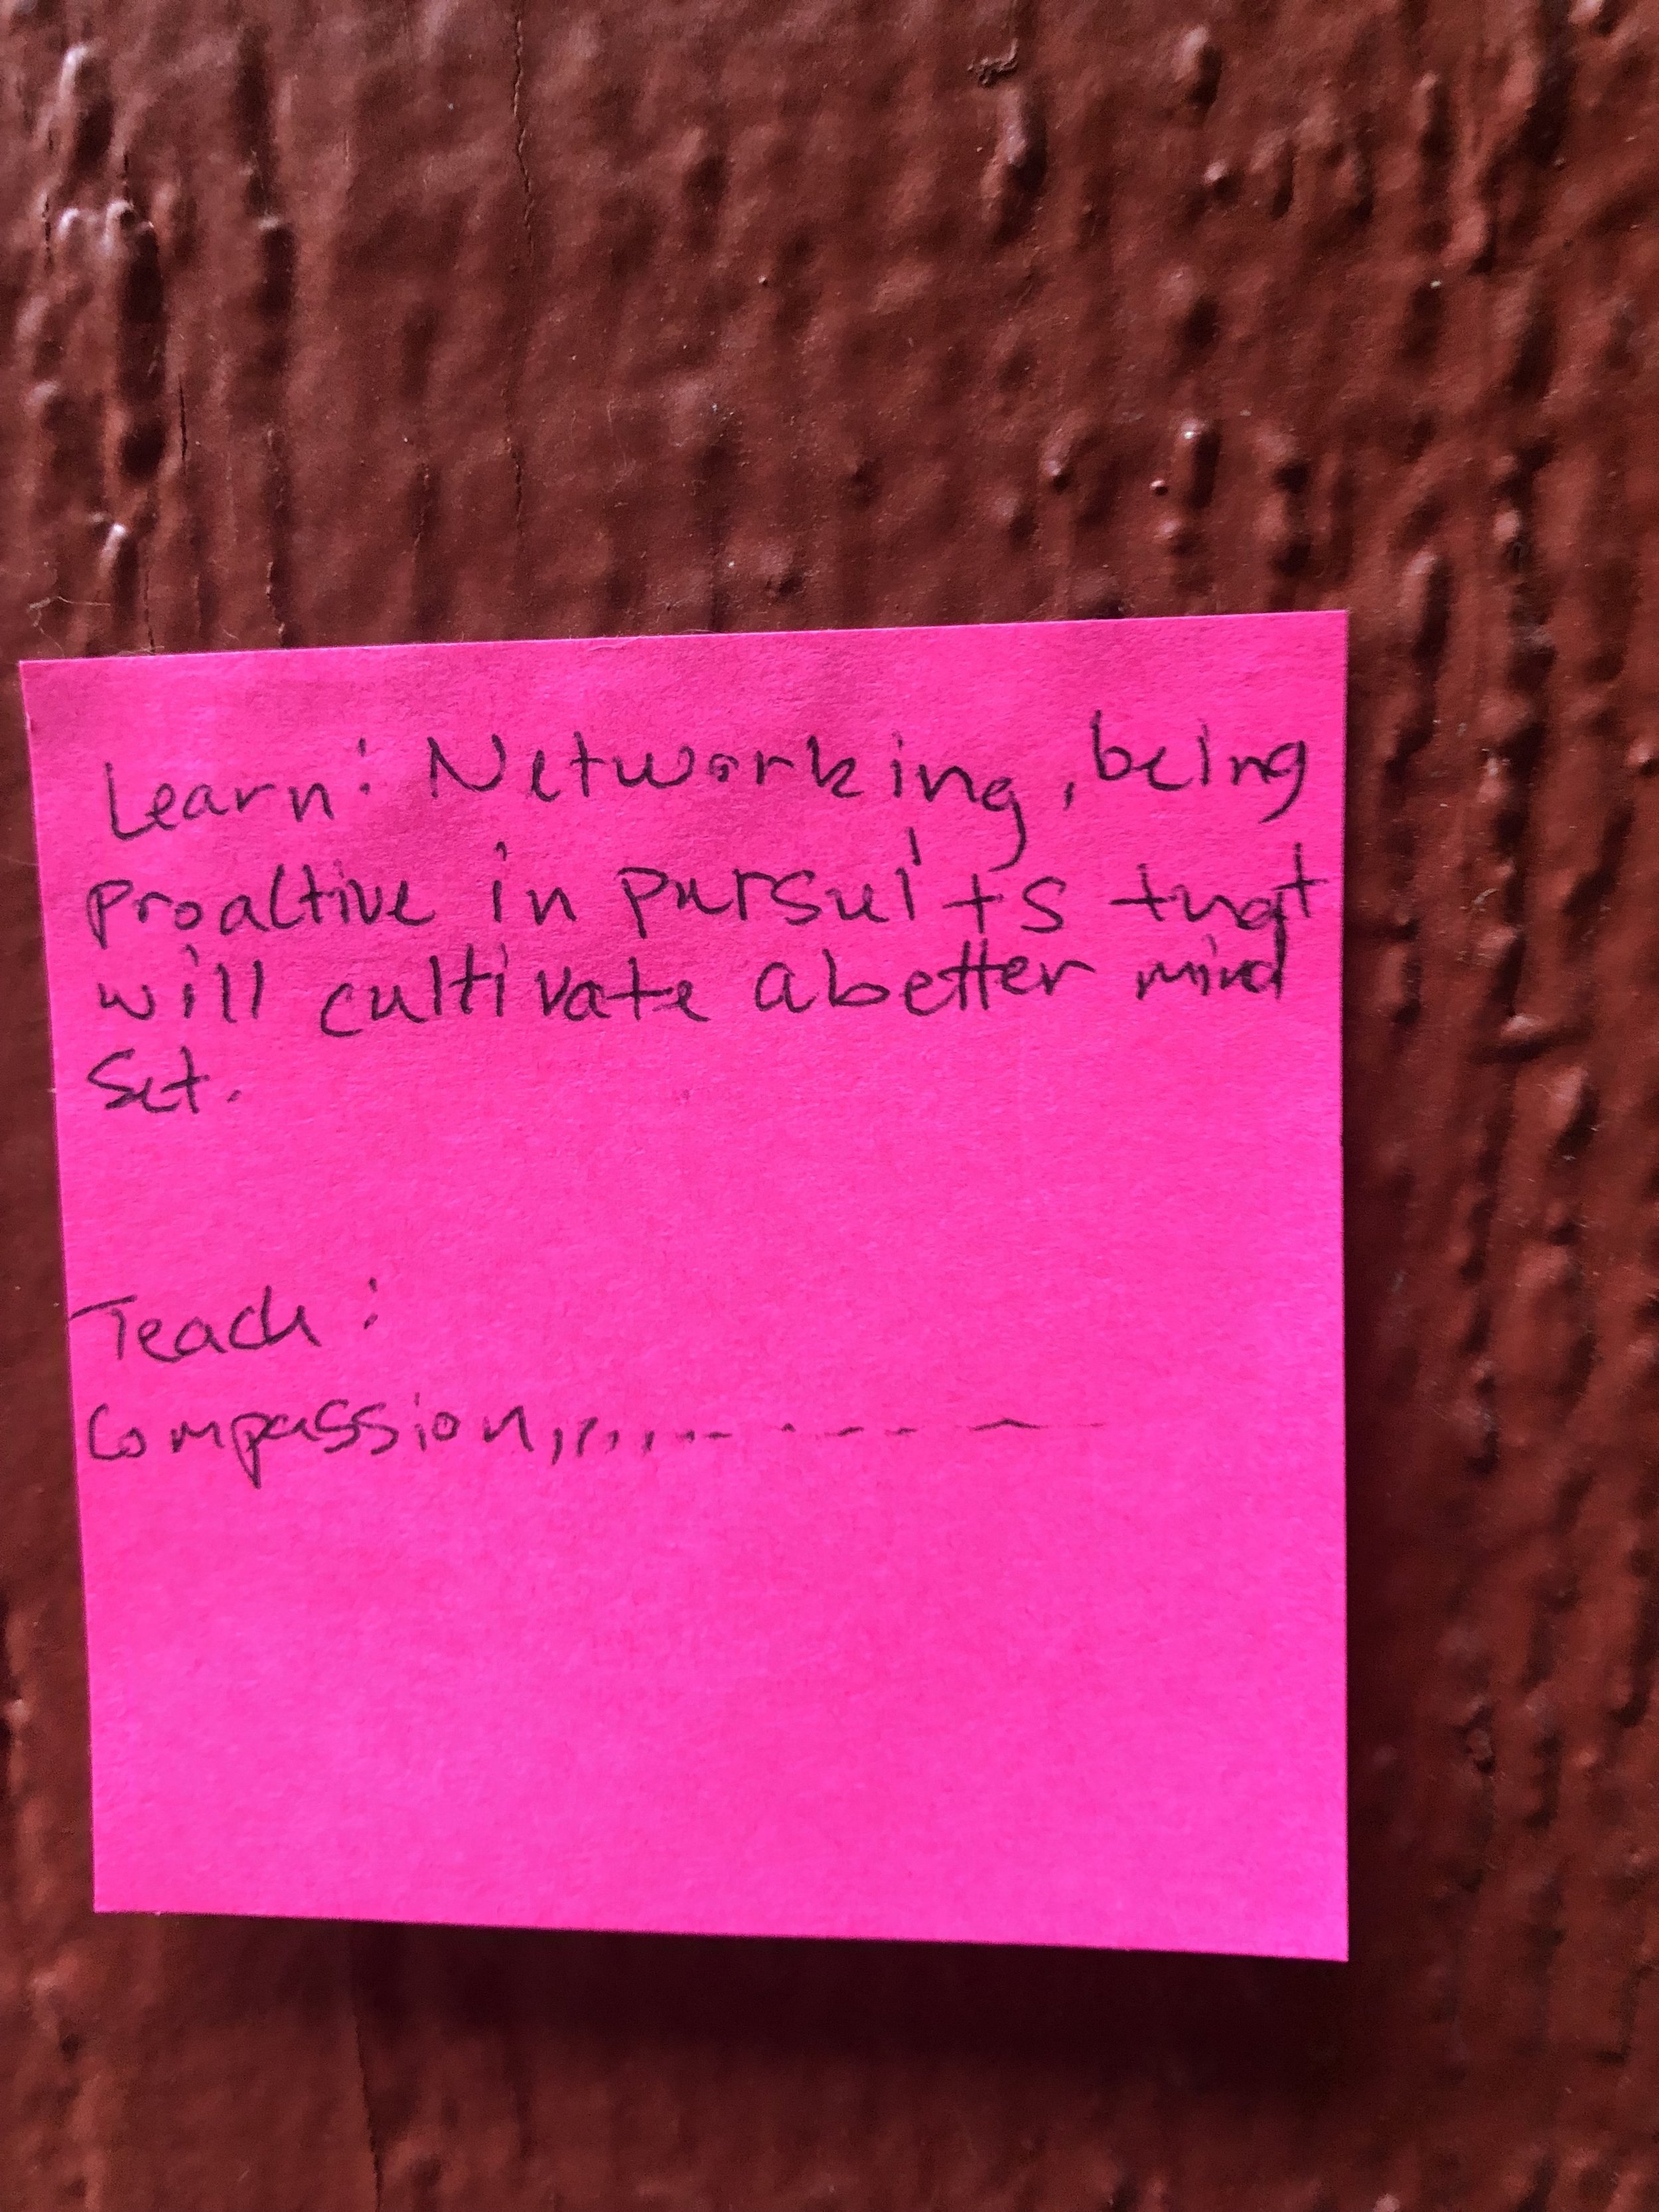 Learn: Networking, being
proactive in pursuits that
will cultivate a better mind
set.
Teach:
Compassion,,,,,...------